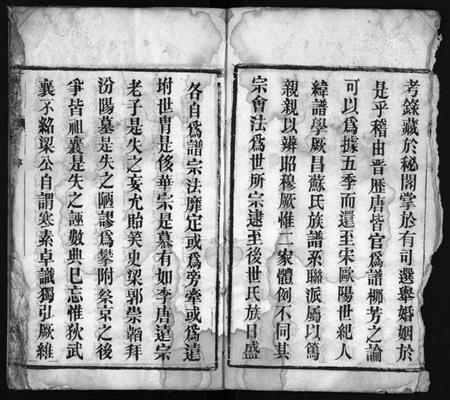 考錄藏於秘閣掌於有司選舉婚姻於
是乎稽由晋歷唐皆官爲譜柳芳之論
可以爲據五季而還至宋歐陽世紀人
緯譜學厥昌蘇氏族譜系聯派屬以篤
親親以辨昭穆厥惟二家體例不同其
宗會法爲世所宗逮至後世氏族日盛
各自爲譜宗法靡定或爲旁牽或爲遠
坿世胄是侈華宗是慕有如李唐遠宗
老子是失之妄尤貽笑史梁郭崇韜拜
汾陽墓是失之陋謬爲攀附蔡京之後
爭皆祖襄是失之誣數典巳忘惟狄武
襄不紹梁公自謂寒素卓識獨引厥維